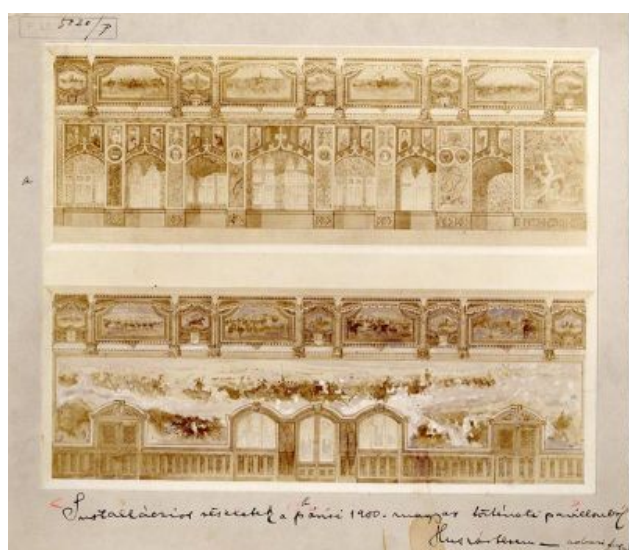 5020/P
Installácziós részletek a párisi 1900. magyar történeti pavillonból
Huszárterem —